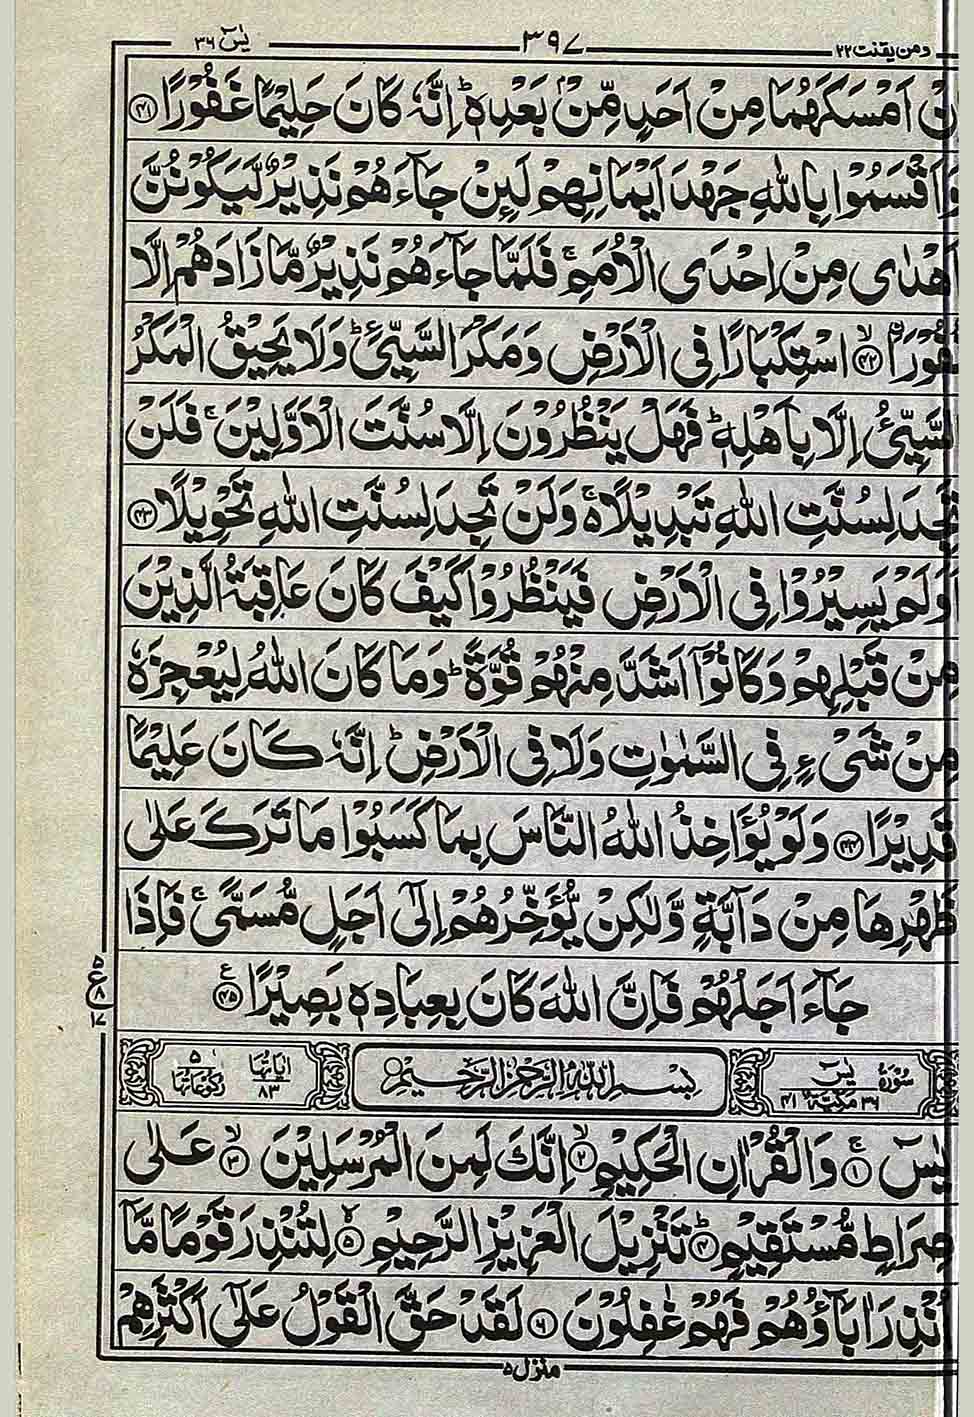 ومن یقنت ۲۲ ۳۹۷ یٰسٓ ۳۶
اِنْ اَمْسَكَهُمَا مِنْ اَحَدٍ مِّنْۢ بَعْدِهٖؕ اِنَّهٗ كَانَ حَلِیْمًا غَفُوْرًا ۴۱
وَاَقْسَمُوْا بِاللّٰهِ جَهْدَ اَیْمَانِهِمْ لَىِٕنْ جَآءَهُمْ نَذِیْرٌ لَّیَكُوْنُنَّ
اَهْدٰى مِنْ اِحْدَى الْاُمَمِۚ فَلَمَّا جَآءَهُمْ نَذِیْرٌ مَّا زَادَهُمْ اِلَّا
نُفُوْرًا ۙ۴۲ اسْتِكْبَارًا فِی الْاَرْضِ وَمَكْرَ السَّیِّئِؕ وَلَا یَحِیْقُ الْمَكْرُ
السَّیِّئُ اِلَّا بِاَهْلِهٖؕ فَهَلْ یَنْظُرُوْنَ اِلَّا سُنَّتَ الْاَوَّلِیْنَۚ فَلَنْ
تَجِدَ لِسُنَّتِ اللّٰهِ تَبْدِیْلًا۬ۚ وَلَنْ تَجِدَ لِسُنَّتِ اللّٰهِ تَحْوِیْلًا ۴۳
اَوَلَمْ یَسِیْرُوْا فِی الْاَرْضِ فَیَنْظُرُوْا كَیْفَ كَانَ عَاقِبَةُ الَّذِیْنَ
مِنْ قَبْلِهِمْ وَكَانُوْۤا اَشَدَّ مِنْهُمْ قُوَّةًؕ وَمَا كَانَ اللّٰهُ لِیُعْجِزَهٗ
مِنْ شَیْءٍ فِی السَّمٰوٰتِ وَلَا فِی الْاَرْضِؕ اِنَّهٗ كَانَ عَلِیْمًا
قَدِیْرًا ۴۴ وَلَوْ یُؤَاخِذُ اللّٰهُ النَّاسَ بِمَا كَسَبُوْا مَا تَرَكَ عَلٰى
ظَهْرِهَا مِنْ دَآبَّةٍ وَّلٰكِنْ یُّؤَخِّرُهُمْ اِلٰۤى اَجَلٍ مُّسَمًّىۚ فَاِذَا
جَآءَ اَجَلُهُمْ فَاِنَّ اللّٰهَ كَانَ بِعِبَادِهٖ بَصِیْرًا ۴۵ ع
۵ ع ۸ ۱۷
سُوْرَةُ یٰسٓ ۳۶ مَكِّیَّةٌ ۴۱ بِسْمِ اللّٰهِ الرَّحْمٰنِ الرَّحِیْمِ اٰیَاتُهَا ۸۳ رُكُوْعَاتُهَا ۵
یٰسٓ ۚ۱ وَالْقُرْاٰنِ الْحَكِیْمِ ۙ۲ اِنَّكَ لَمِنَ الْمُرْسَلِیْنَ ۙ۳ عَلٰى
صِرَاطٍ مُّسْتَقِیْمٍ ؕ۴ تَنْزِیْلَ الْعَزِیْزِ الرَّحِیْمِ ۙ۵ لِتُنْذِرَ قَوْمًا مَّاۤ
اُنْذِرَ اٰبَآؤُهُمْ فَهُمْ غٰفِلُوْنَ ۶ لَقَدْ حَقَّ الْقَوْلُ عَلٰۤى اَكْثَرِهِمْ
منزل ۵